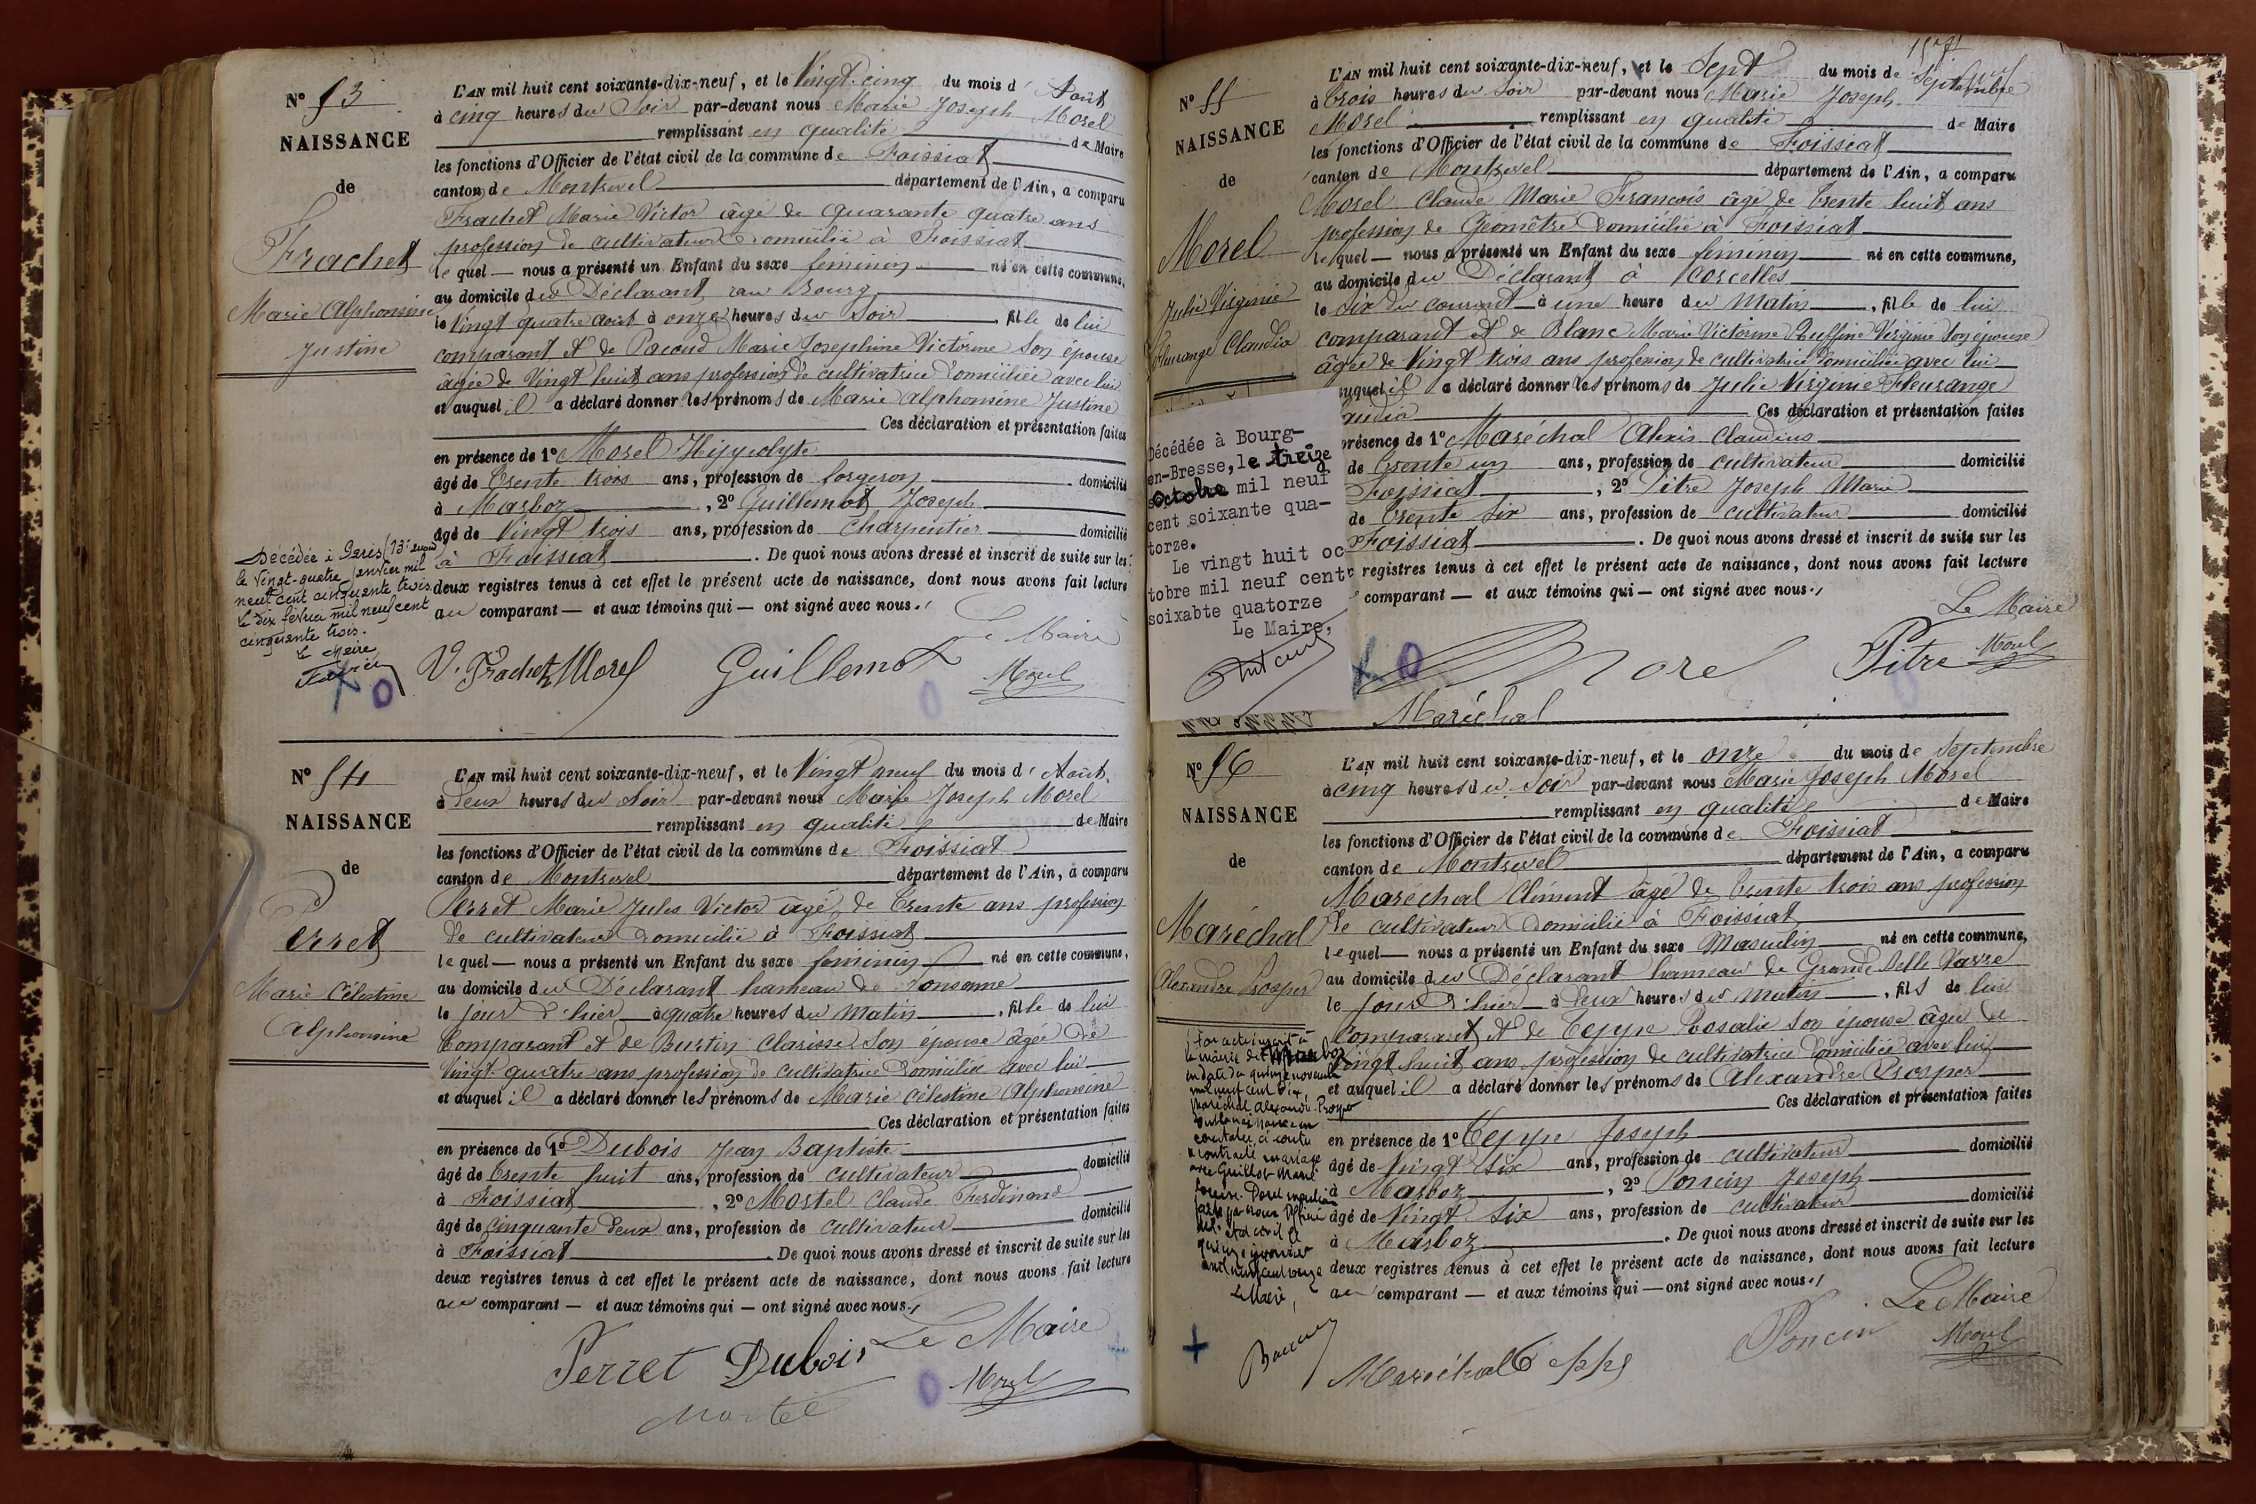 N° 53
NAISSANCE
de
Frachet
Marie Alphonsine
Justine
L'AN mil huit cent soixante-dix-neuf, et le Vingt-cinq du mois d'Août
à cinq heures du Soir par-devant nous Marie Joseph Morel
remplissant en qualité de Maire
les fonctions d'Officier de l'état civil de la commune de Foissiat
canton de Montrevel département de l'Ain, a comparu
Frachet Marie Victor âgé de quarante quatre ans
profession de cultivateur domicilié à Foissiat
lequel — nous a présenté un Enfant du sexe féminin né en cette commune,
au domicile du Déclarant au Bourg
le Vingt quatre août à onze heures du Soir, fille de lui
comparant et de Pacoud Marie Josephine Victorine son épouse
âgée de Vingt huit ans profession de cultivatrice domiciliée avec lui
et auquel il a déclaré donner les prénoms de Marie Alphonsine Justine
Ces déclaration et présentation faites
en présence de 1° Morel Hippolyte
âgé de trente trois ans, profession de forgeron domicilié
à Marboz, 2° Guillemot Joseph
âgé de Vingt trois ans, profession de Charpentier domicilié
à Foissiat. De quoi nous avons dressé et inscrit de suite sur les
deux registres tenus à cet effet le présent acte de naissance, dont nous avons fait lecture
au comparant — et aux témoins qui — ont signé avec nous.
Décédée à Paris (13e
le vingt-quatre janvier mil
neuf cent cinquante trois.
le dix février mil neuf cent
cinquante trois.
Le Maire
Le Maire
V. Frachet Morel Guillemot Morel
N° 54
NAISSANCE
de
Perret
Marie Célestine
Alphonsine
L'AN mil huit cent soixante-dix-neuf, et le Vingt neuf du mois d'Août
à deux heures du Soir par-devant nous Marie Joseph Morel
remplissant en qualité de Maire
les fonctions d'Officier de l'état civil de la commune de Foissiat
canton de Montrevel département de l'Ain, a comparu
Perret Marie Jules Victor âgé de trente ans profession
de cultivateur domicilié à Foissiat
lequel — nous a présenté un Enfant du sexe féminin né en cette commune,
au domicile du Déclarant hameau de
le jour d'hier à quatre heures du matin, fille de lui
comparant et de Burtin Clarisse son épouse âgée de
Vingt-quatre ans profession de cultivatrice domiciliée avec lui
et auquel il a déclaré donner les prénoms de Marie Célestine Alphonsine
Ces déclaration et présentation faites
en présence de 1° Dubois Jean Baptiste
âgé de trente huit ans, profession de cultivateur domicilié
à Foissiat, 2° Mostel Claude Ferdinand
âgé de cinquante deux ans, profession de cultivateur domicilié
à Foissiat. De quoi nous avons dressé et inscrit de suite sur les
deux registres tenus à cet effet le présent acte de naissance, dont nous avons fait lecture
au comparant — et aux témoins qui — ont signé avec nous.
Le Maire
Perret Dubois Morel
N° 55
NAISSANCE
de
Morel
Julie Virginie
Fleurange Claudia
L'AN mil huit cent soixante-dix-neuf, et le Sept du mois de Septembre
à trois heures du Soir par-devant nous Marie Joseph
Morel remplissant en qualité de Maire
les fonctions d'Officier de l'état civil de la commune de Foissiat
canton de Montrevel département de l'Ain, a comparu
Morel Claude Marie François âgé de trente huit ans
profession de Géomètre domicilié à Foissiat
lequel — nous a présenté un Enfant du sexe féminin né en cette commune,
au domicile du Déclarant à Corcelles
le six du courant à une heure du matin, fille de lui
comparant et de Blanc Marie Victorine Ruffine Virginie son épouse
âgée de Vingt trois ans profession de cultivatrice domiciliée avec lui
auquel il a déclaré donner les prénoms de Julie Virginie Fleurange
Ces déclaration et présentation faites
présence de 1° Maréchal Alexis Claudius
de trente un ans, profession de cultivateur domicilié
Foissiat, 2° Pitre Joseph Marie
de trente six ans, profession de cultivateur domicilié
Foissiat. De quoi nous avons dressé et inscrit de suite sur les
registres tenus à cet effet le présent acte de naissance, dont nous avons fait lecture
comparant — et aux témoins qui — ont signé avec nous.
Décédée à Bourg-
en-Bresse, le treize
Octobre mil neuf
cent soixante qua-
torze.
Le vingt huit oc
tobre mil neuf cent
soixabte quatorze
Le Maire,
Le Maire
Morel Pitre Morel
Maréchal
N° 56
NAISSANCE
de
Maréchal
Alexandre Prosper
L'AN mil huit cent soixante-dix-neuf, et le onze du mois de Septembre
à cinq heures du Soir par-devant nous Marie Joseph Morel
remplissant en qualité de Maire
les fonctions d'Officier de l'état civil de la commune de Foissiat
canton de Montrevel département de l'Ain, a comparu
Maréchal Clément âgé de trente trois ans profession
de cultivateur domicilié à Foissiat
lequel — nous a présenté un Enfant du sexe Masculin né en cette commune,
au domicile du Déclarant hameau de Grande
le jour d'hier à deux heures du matin, fils de lui
comparant et de Teppe Rosalie son épouse âgée de
Vingt huit ans profession de cultivatrice domiciliée avec lui
et auquel il a déclaré donner les prénoms de Alexandre Prosper
Ces déclaration et présentation faites
en présence de 1° Teppe Joseph
âgé de Vingt six ans, profession de cultivateur domicilié
à Marboz, 2° Poncin Joseph
âgé de Vingt six ans, profession de cultivateur domicilié
à Marboz. De quoi nous avons dressé et inscrit de suite sur les
deux registres tenus à cet effet le présent acte de naissance, dont nous avons fait lecture
au comparant — et aux témoins qui — ont signé avec nous.
Par acte inscrit à
la mairie de Marboz
en date du quinze novembre
mil neuf cent dix,
Maréchal Alexandre Prosper
dont la naissance est
constatée ci contre
a contracté mariage
avec Guillot Marie
Le Maire,
Le Maire
Maréchal Teppe Poncin Morel